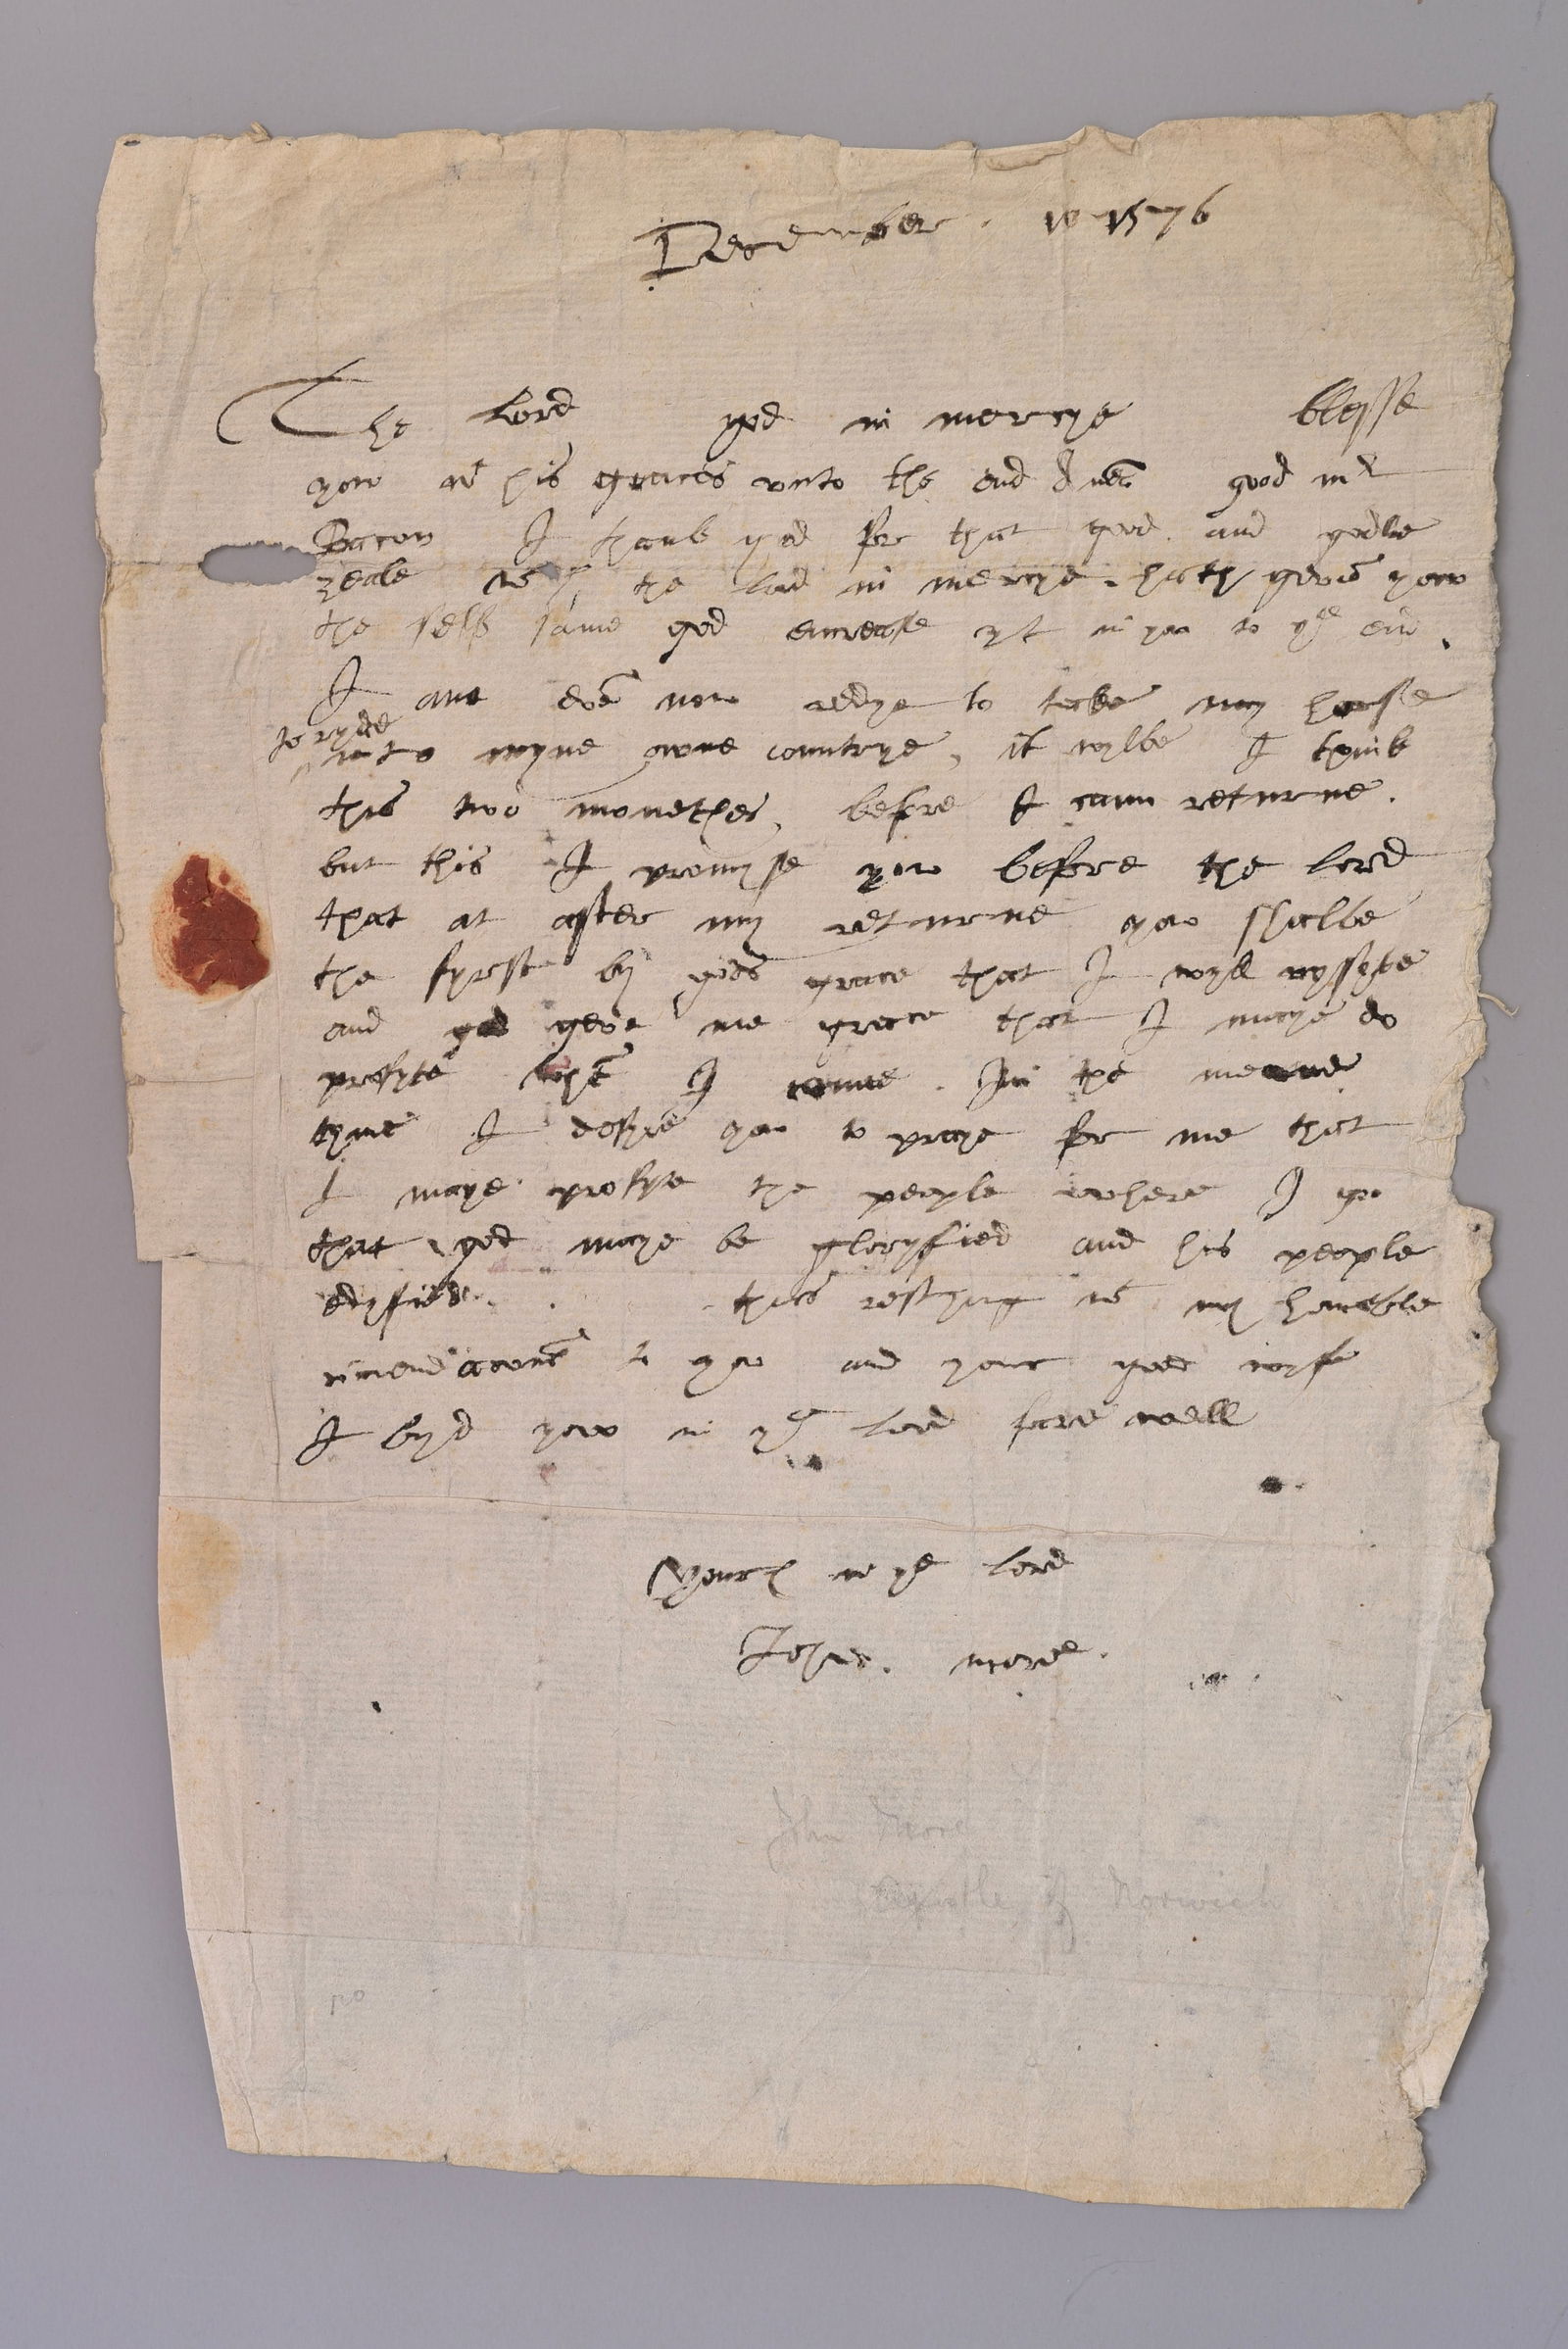 December . 10 1576
The Lord god in mercye blesse
yow wt his graces unto the end Amē good mr
Bacon I thank god for that good and godlie
zeale wch the lord in mercye hath gevē yow
the self same god encrease yt in yow to ye end .
I ame evē now redye to take my horse
to ryde
into myne owne countrye, it wylbe I think
this two monethes, before I cann returne.
but this I promyse yow before the lord
that at after my returne yow shalbe
the fyrste by gods grace that I wyll vyssyte
and god geve me grace that I maye do
profyte whē I come . In the meane
tyme I desyre yow to praye for me that
I maye profyte the people where I go
that god maye be gloryfied and his people
edyfied. thus restyng wt my humble
to yow and your good wyf
I byd yow in ye Lord fare well
Yours in ye lord
Jhon . more .
John More
Apostle of Norwich